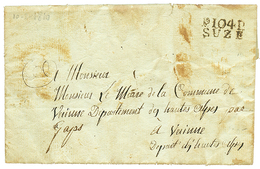 P104P
SUZE
Monsieur
Monsieur Le Maire de la Commune de
Veinne Departement des hautes Alpes par
Gap
a Veinne
Depart des hautes Alpes